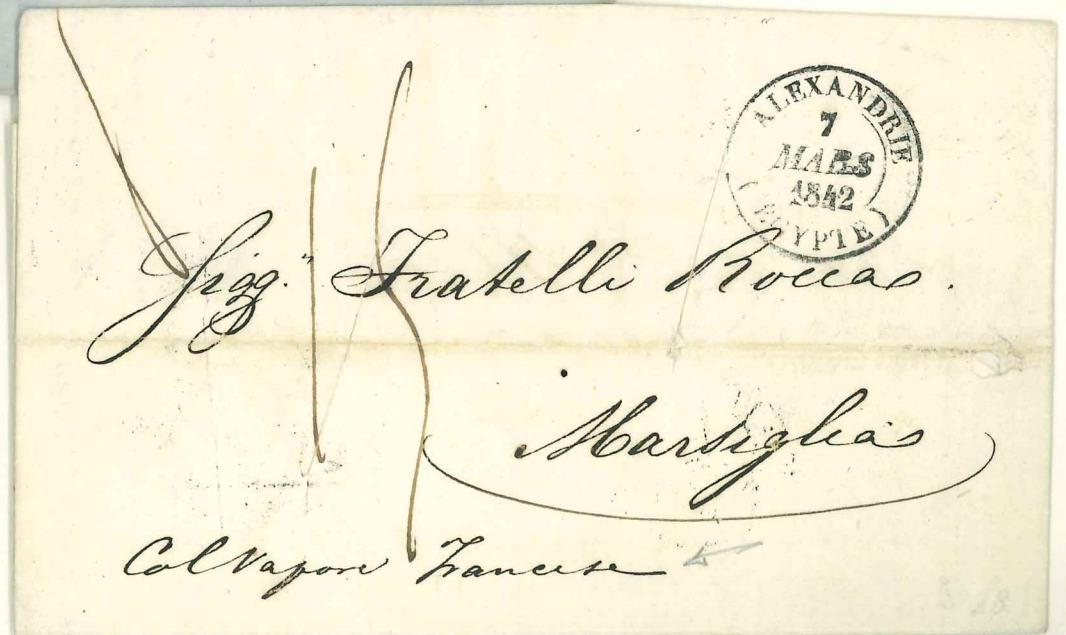 ALEXANDRIE
7
MARS
1842
(EGYPTE)
15
Sigg.ri Fratelli Rocca.
Marsiglia
Col Vapore Francese
28